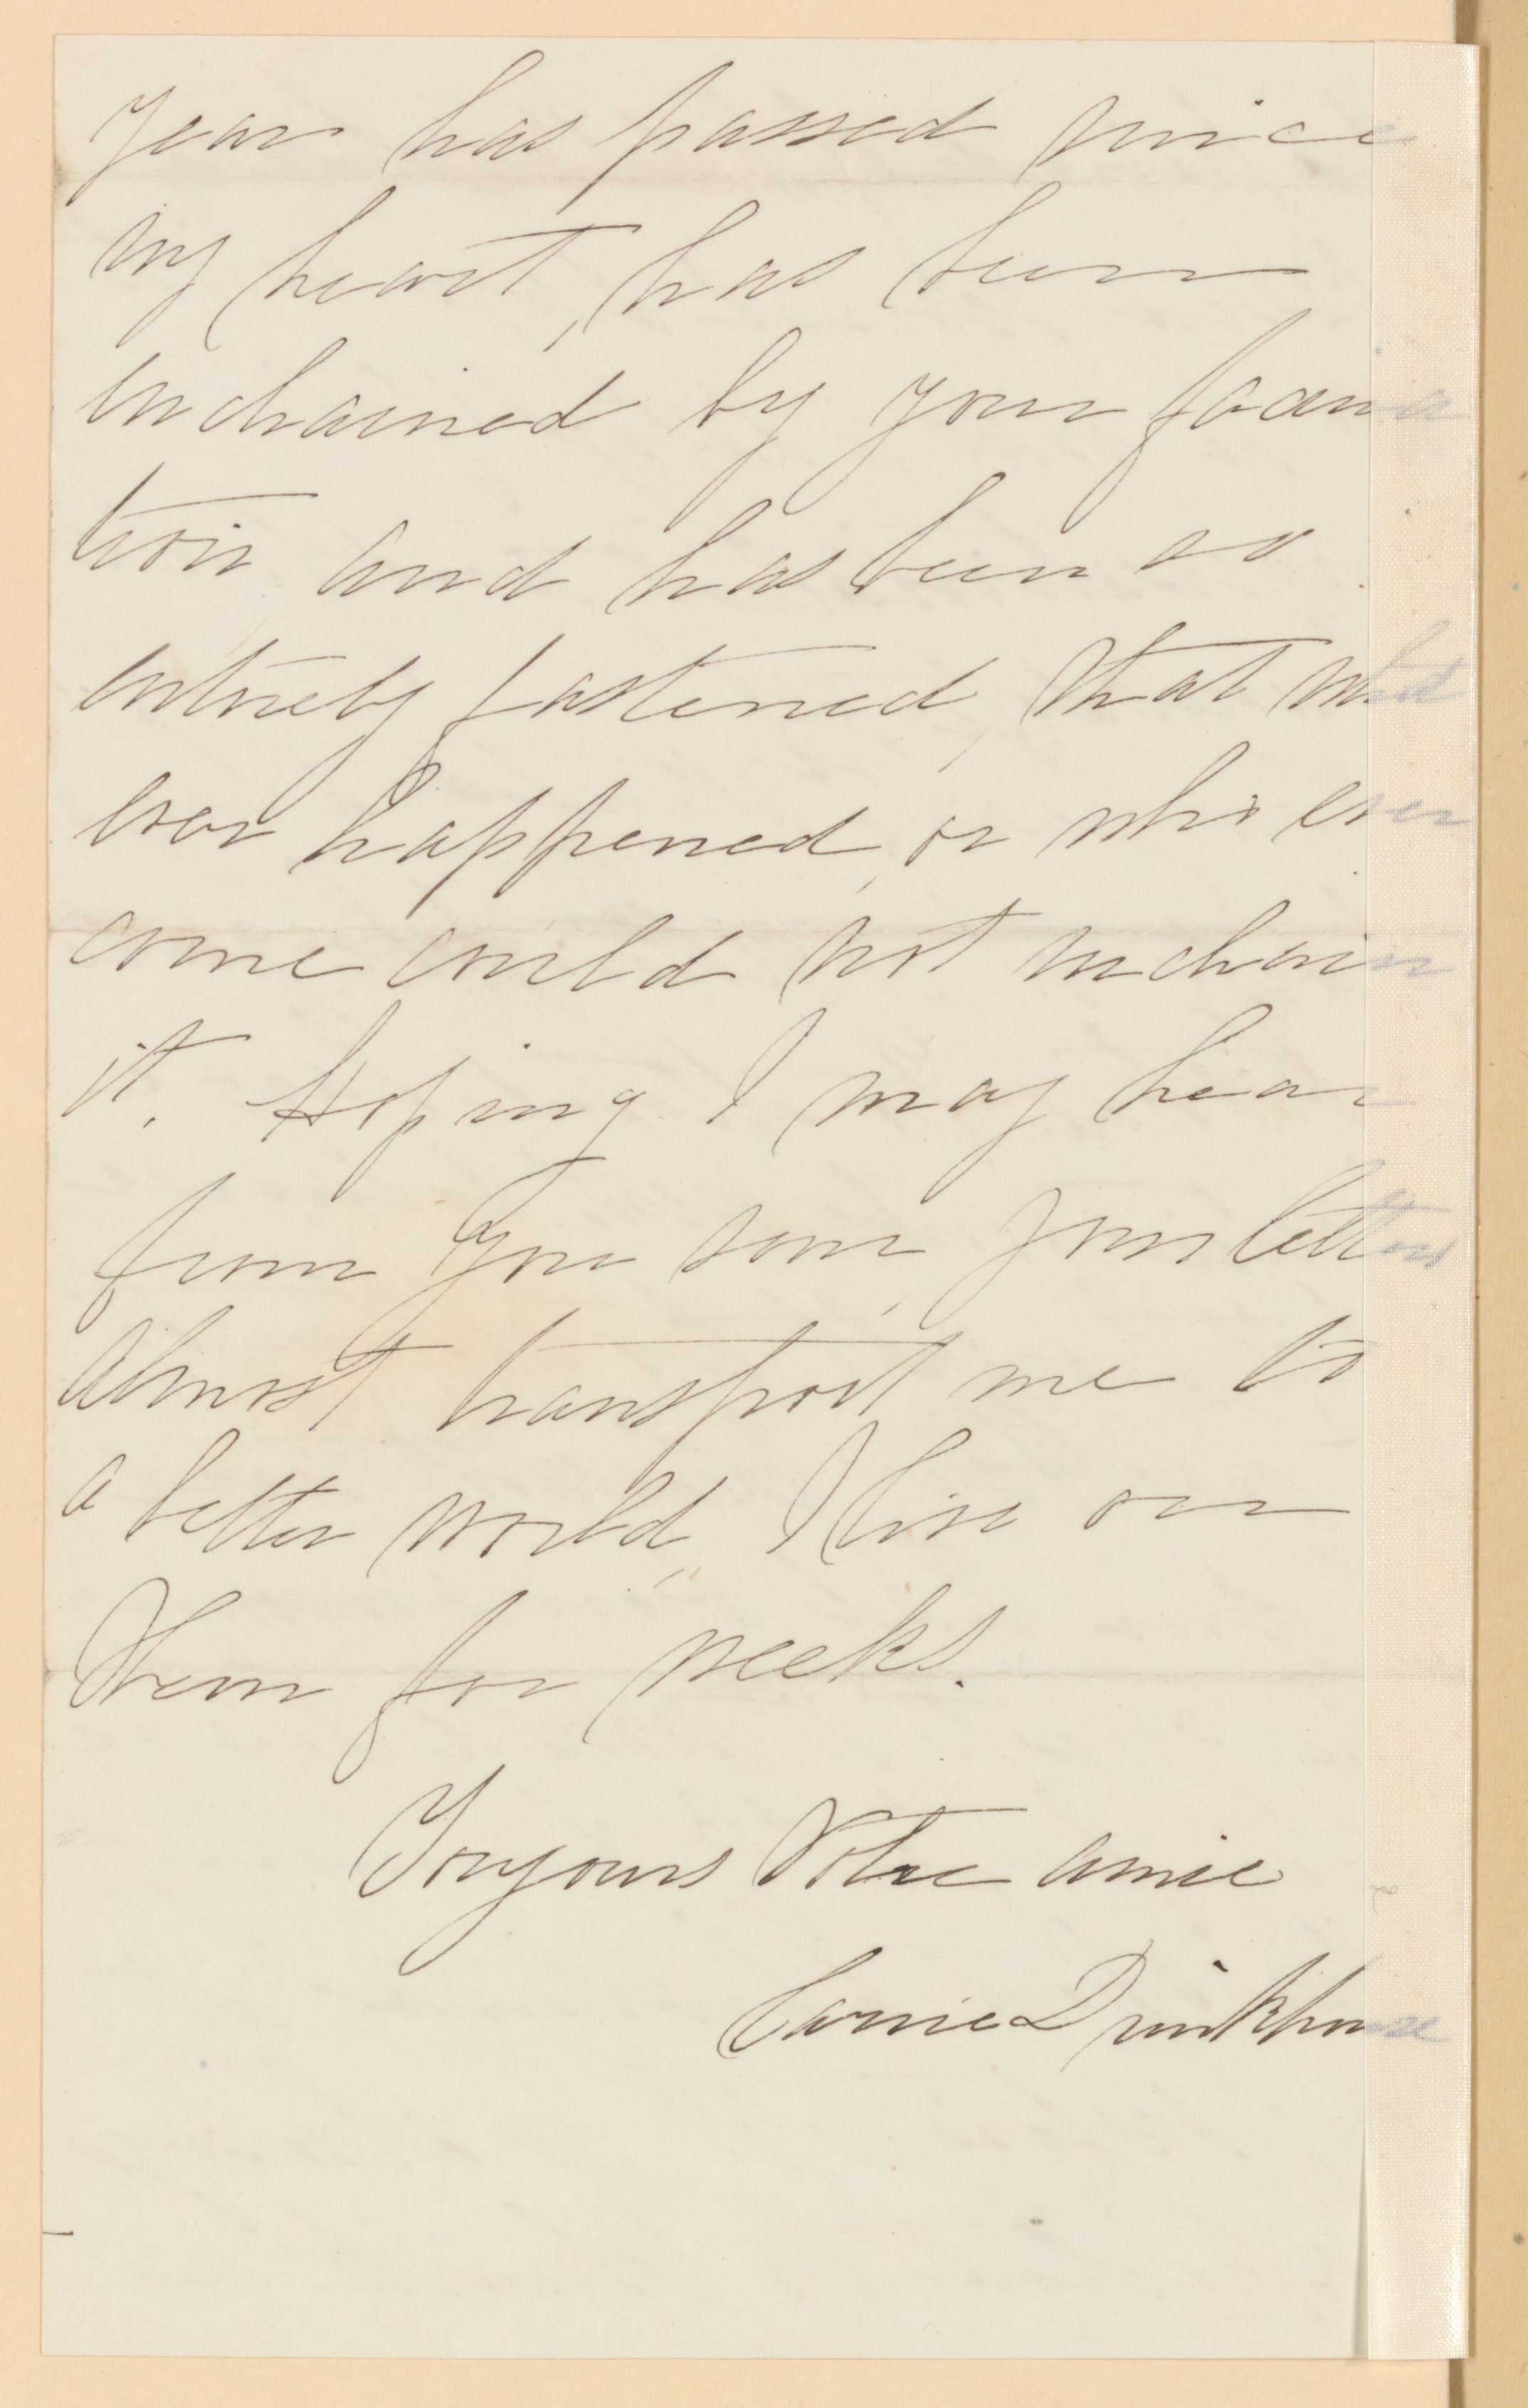 year has passed since
my heart, has been
enchained by your facina
tion and has been so
entirely fastened, that what
ever happened, or who ever
come could not unchain
it. Hoping I may hear
from you soon, your letters
almost transport me to
a better world, I live on
them for weeks.
Toujours Votre amie
Carrie Drinkhouse